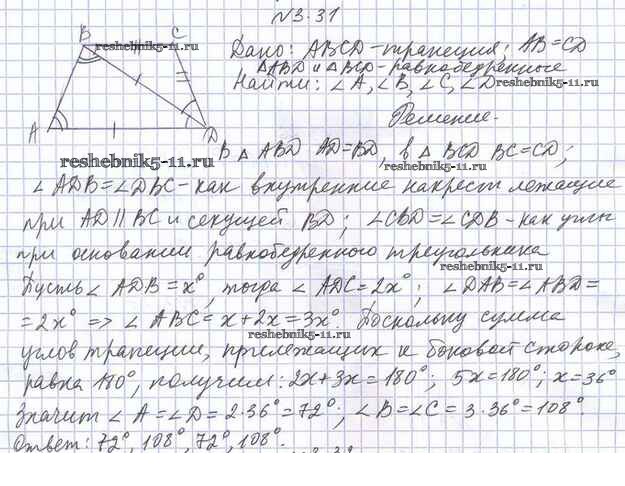 N3.31
B C
reshebnik5-11.ru
Дано: ABCD - трапеция; AB=CD
△ABD и △BCD - равнобедренные
Найти: ∠A, ∠B, ∠C, ∠D
reshebnik5-11.ru
Решение.
A D
В △ ABD AD=BD, в △ BCD BC=CD;
reshebnik5-11.ru
reshebnik5-11.ru
∠ADB=∠DBC - как внутренние накрест лежащие
при AD||BC и секущей BD; ∠CBD=∠CDB - как углы
при основании равнобедренного треугольника
reshebnik5-11.ru
Пусть ∠ ADB=x°, тогда ∠ ADC=2x°; ∠DAB=∠ABD=
=2x° => ∠ ABC=x+2x=3x°. Поскольку сумма
reshebnik5-11.ru
углов трапеции, прилежащих к боковой стороне,
равна 180°, получим: 2x+3x=180°; 5x=180°; x=36°
reshebnik5-11.ru
Значит ∠ A=∠D=2·36°=72°; ∠B=∠C=3·36°=108°.
Ответ: 72°, 108°, 72°, 108°.